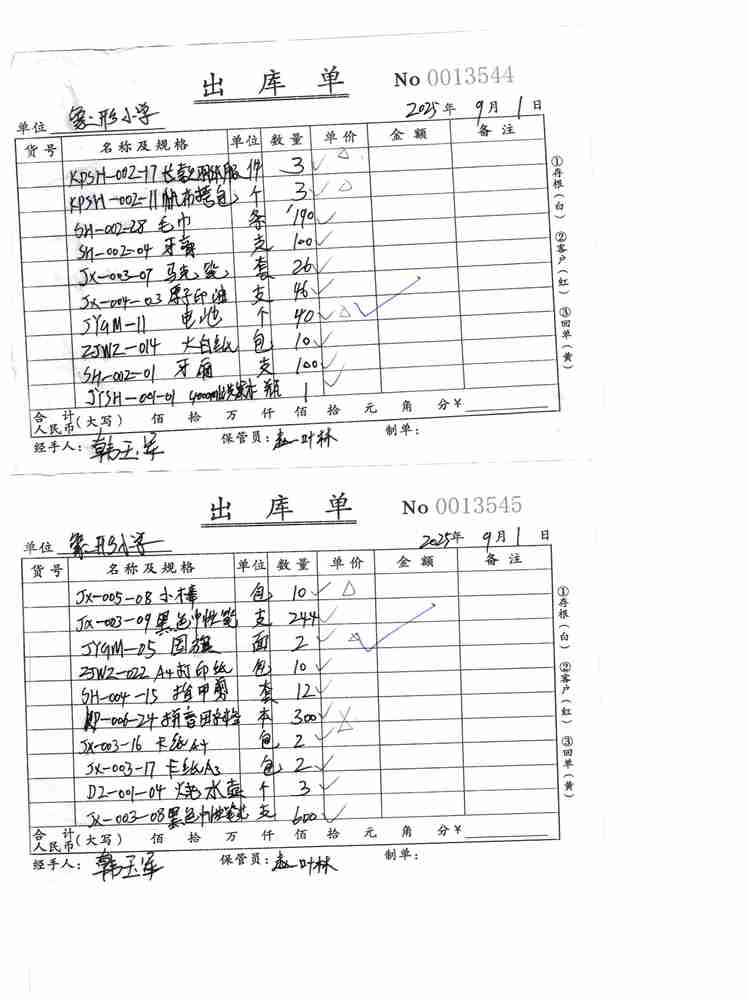 出 库 单 No 0013544
单位 象形小学 2025年 9月 1日
货号 名称及规格 单位 数量 单价 金额 备注
KPSH-002-17 件 3 ✓ △
KPSH-002-11 帆布挎包 个 3 ✓ △
SH-002-28 毛巾 条 190 ✓
SH-002-04 牙膏 支 100 ✓
JX-003-07 马克笔 套 26 ✓
JX-004-03 原子印油 支 46 ✓
JYGM-11 电池 个 40 ✓ △
ZJWZ-014 大白纸 包 10 ✓
SH-002-01 牙刷 支 100 ✓
JYSH-001-01 瓶 1
合计人民币(大写) 佰 拾 万 仟 佰 拾 元 角 分¥
经手人: 韩玉军 保管员: 赵叶林 制单:
①存根(白) ②客户(红) ③回单(黄)
出 库 单 No 0013545
单位 象形小学 2025年 9月 1日
货号 名称及规格 单位 数量 单价 金额 备注
JX-005-08 小棒 包 10 ✓ △
JX-003-09 黑色中性笔 支 244 ✓
JYGM-05 国旗 面 2 ✓
ZJWZ-022 A4打印纸 包 10 ✓
SH-004-15 指甲剪 套 12 ✓
-006-24 拼音田字格 本 300 ✓
JX-003-16 卡纸A4 包 2 ✓
JX-003-17 卡纸A3 包 2 ✓
DZ-001-04 烧水壶 个 3 ✓
JX-003-08 黑色中性笔芯 支 600 ✓
合计人民币(大写) 佰 拾 万 仟 佰 拾 元 角 分¥
经手人: 韩玉军 保管员: 赵叶林 制单:
①存根(白) ②客户(红) ③回单(黄)